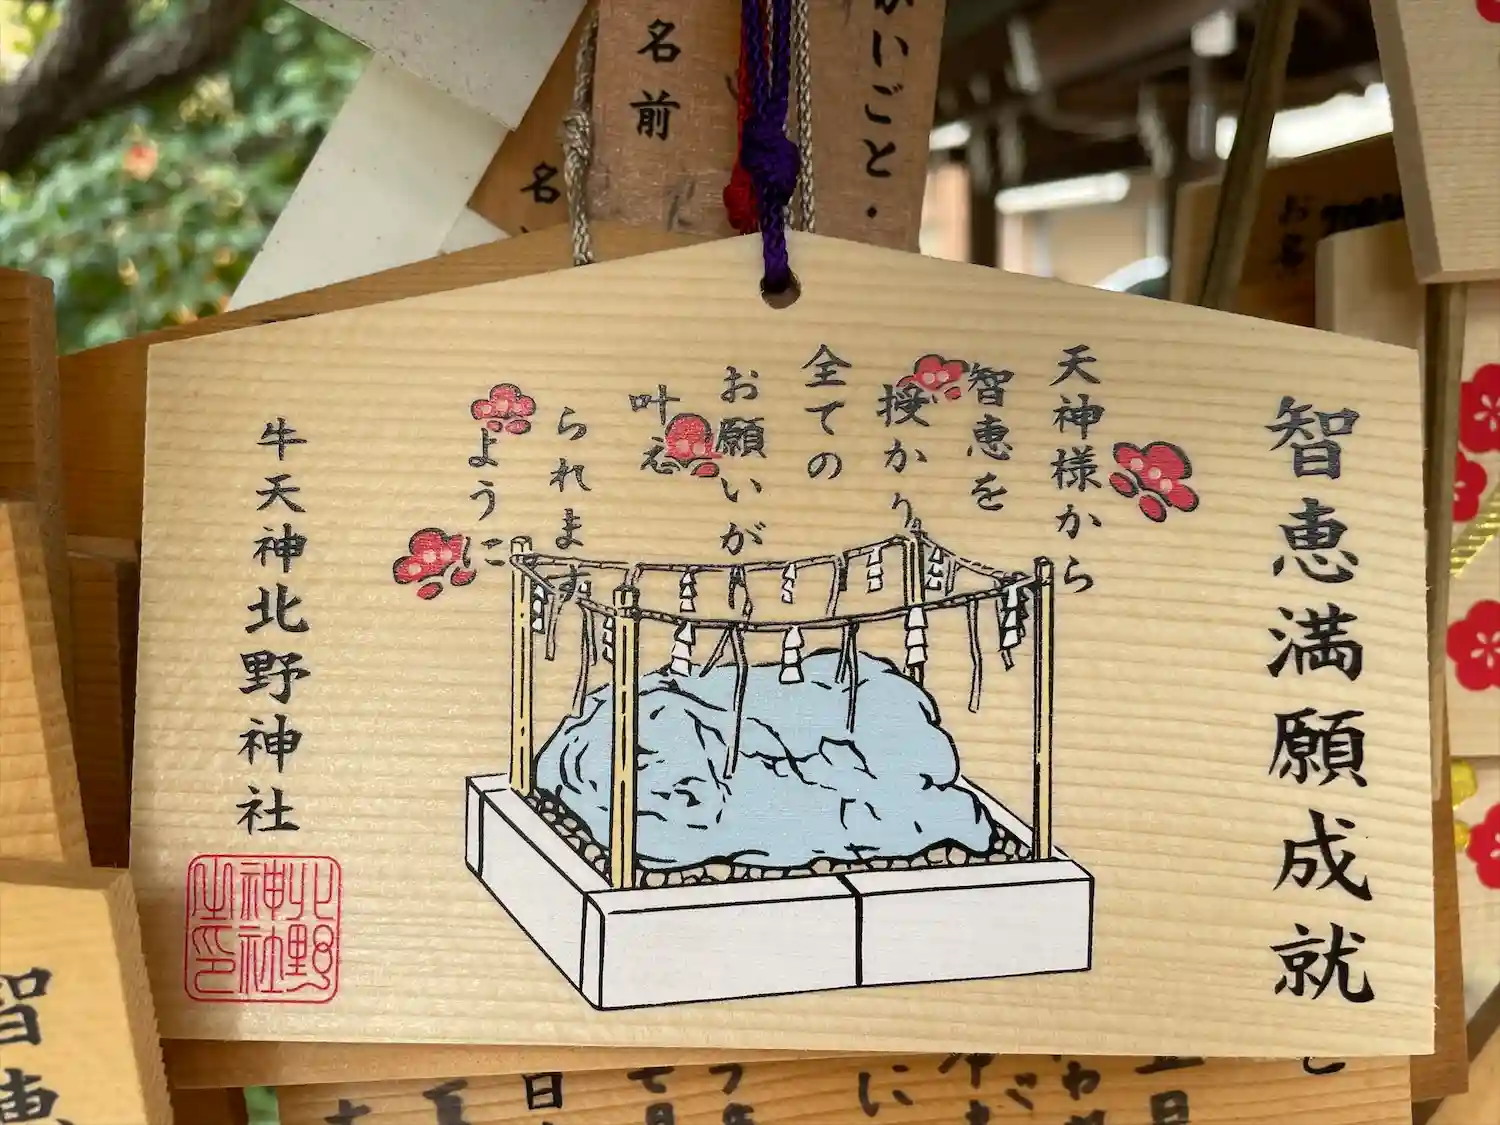 智恵満願成就
天神様から
智恵を
授かり
全ての
お願いが
叶え
られます
ように
牛天神北野神社
北野
神社
之印
名前
がいごと・
名
お名
智恵